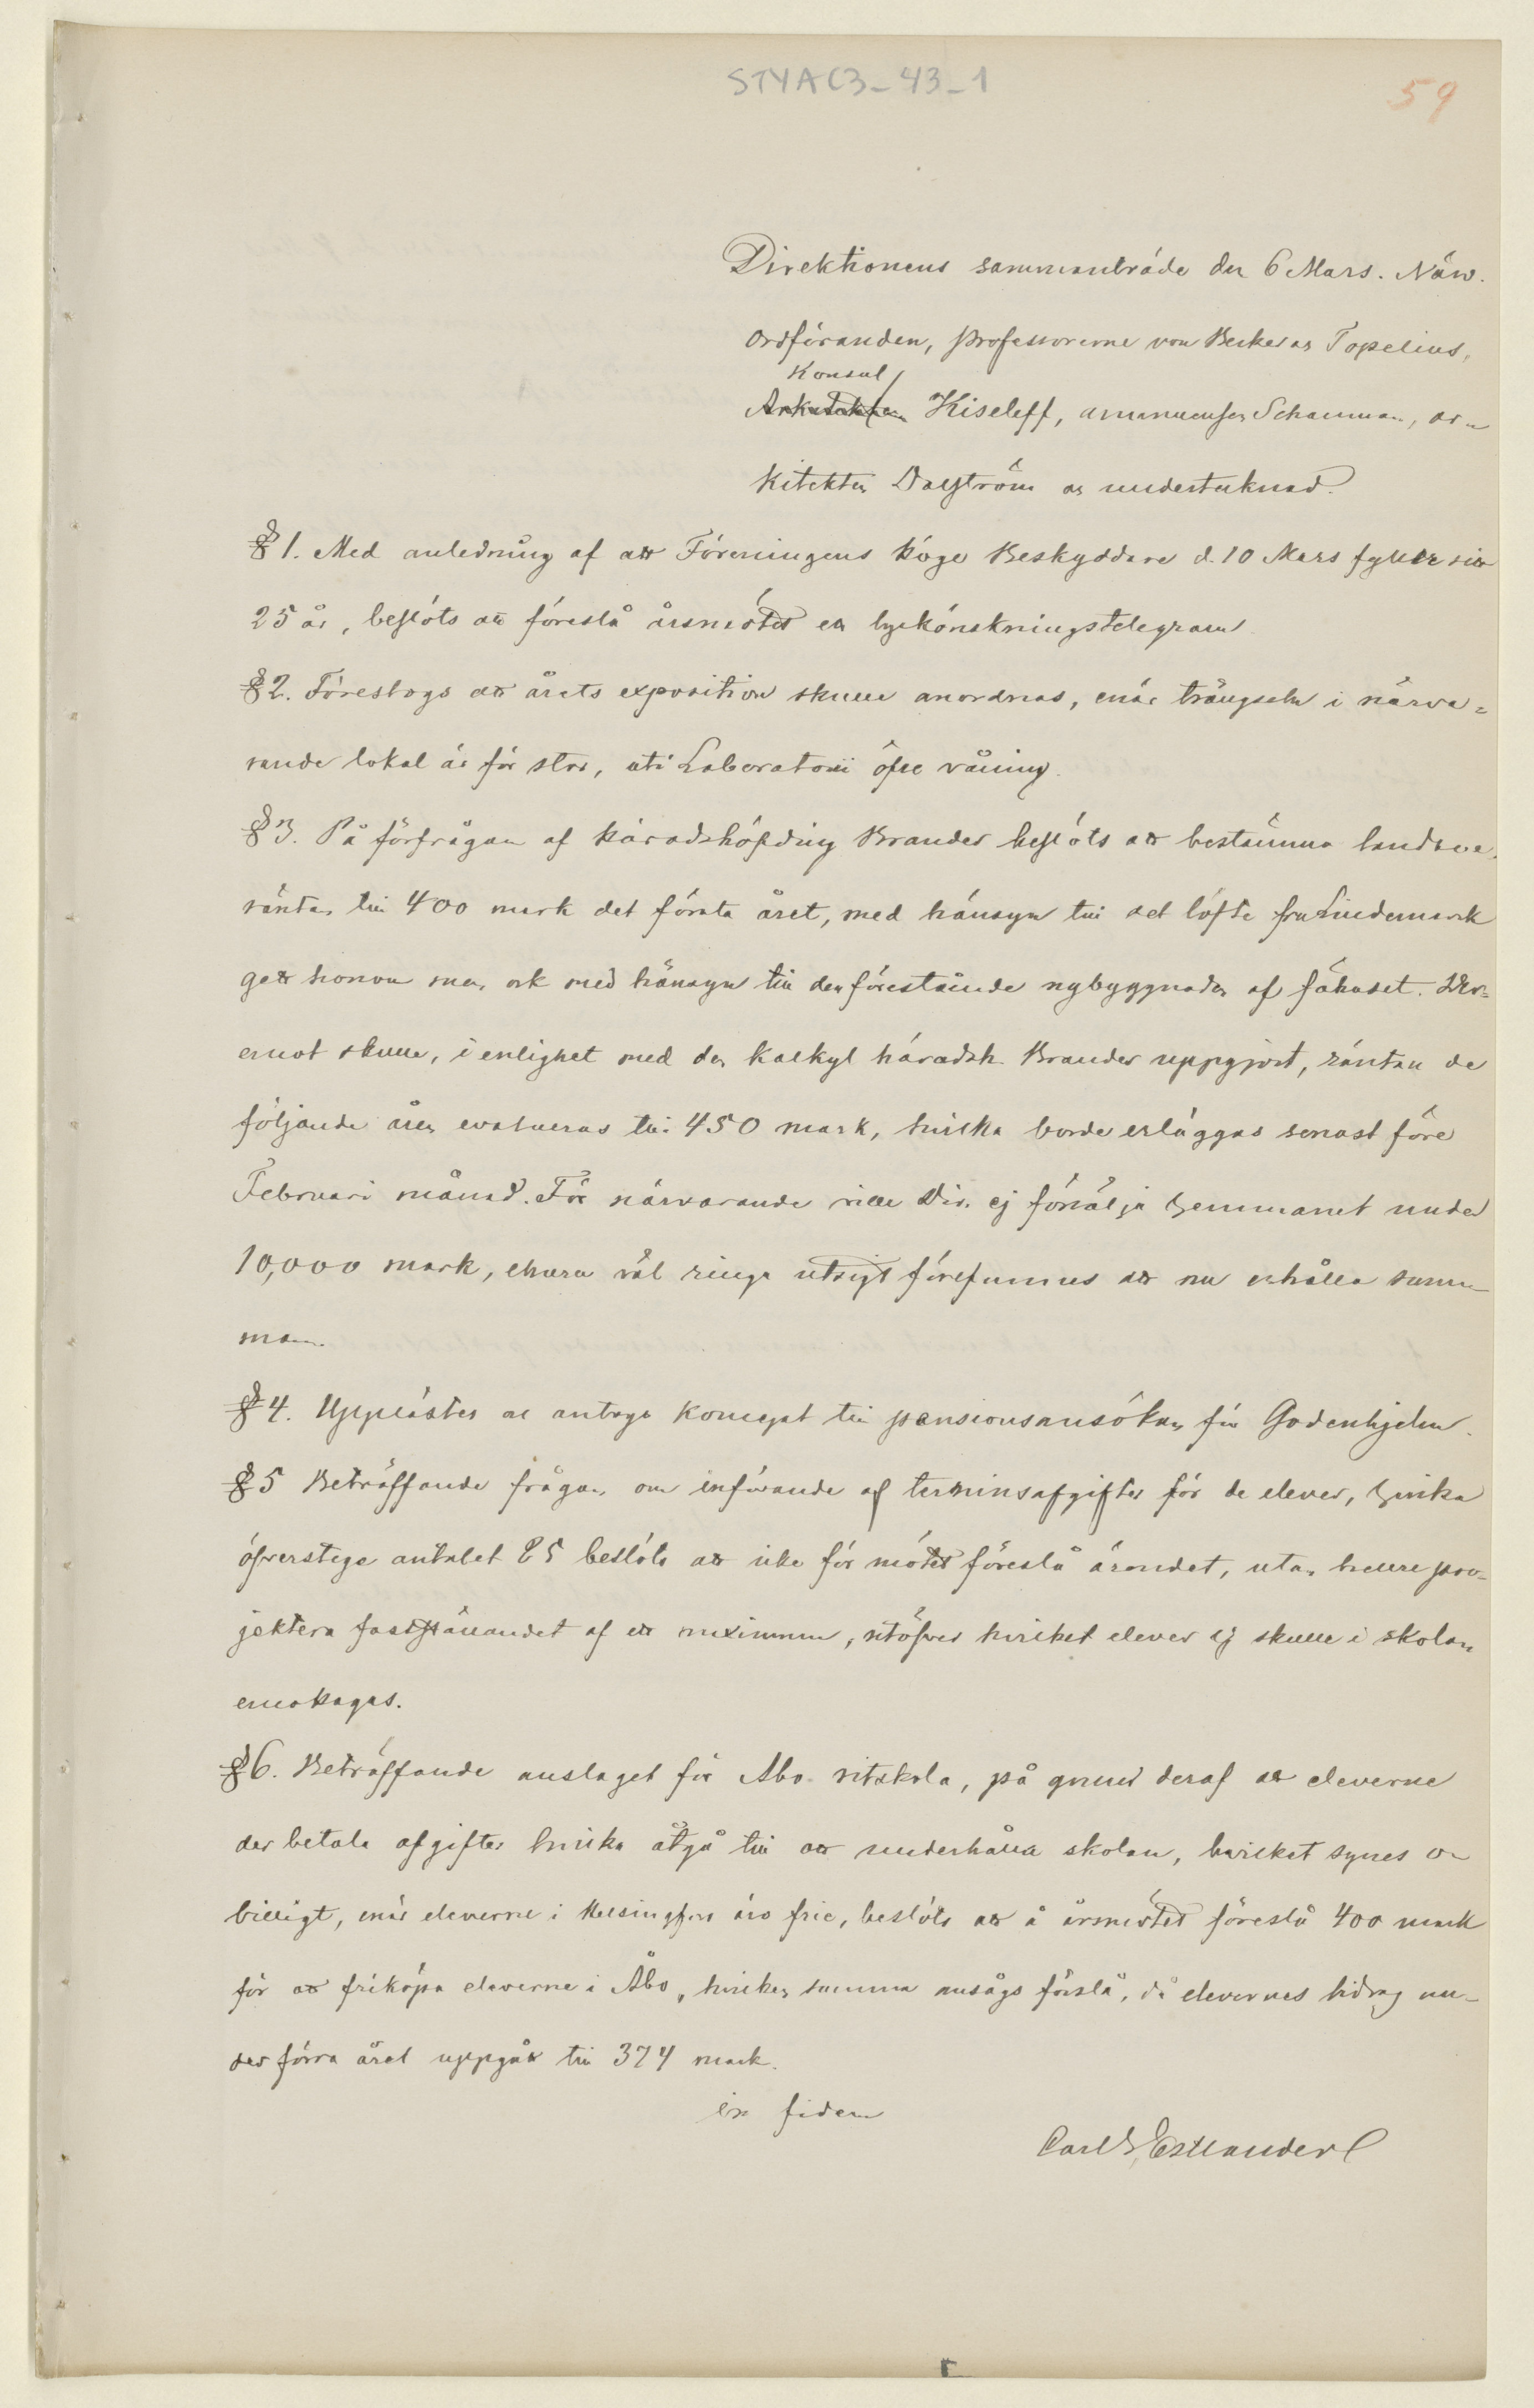 STYA C3-43-1
59
Direktionens sammanträde den 6 Mars. Närv.
Ordföranden, professorerne von Becker o. Topelius,
Konsul
Arkitekten Kiseleff, amanuensen Schauman, ar-
kitekten Dalström o. undertecknad.
§ 1. Med anledning af att Föreningens höge Beskyddare d. 10 Mars fyller sitt
25 år, beslöts att föreslå årsmötet en lyckönskningstelegram
§ 2. Föreslogs att årets exposition skulle anordnas, enär trängseln i närva=
rande lokal är för stor, uti Laboratorii öfre våning.
§ 3. På förfrågan af häradshöfding Brander beslöts att bestämma
räntan till 400 mark det första året, med hänsyn till det löfte fru Lindemark
gett honom men ock med hänsyn till den förestående nybyggnaden af fähuset. Der=
emot skulle, i enlighet med den kalkyl häradsh. Brander uppgjort, räntan de
följande åren evalueras till 450 mark, hvilka borde erläggas senast före
Februari månad. För närvarande ville Dir. ej försälja hemmanet under
10,000 mark, ehuru väl ringa utsigt förefunnes att nu erhålla sum-
man.
§ 4. Upplästes o. antogs koncept till pensionsansökan för Godenhjelm.
§ 5 Beträffande frågan om införande af terminsafgifter för de elever, hvilka
öfverstege antalet 25 beslöts att icke för mötet föreslå ärendet, utan hellre pro-
jektera fastställandet af ett maximum, utöfver hvilket elever ej skulle i skolan
emottagas.
§ 6. Beträffande anslaget för Åbo ritskola, på grund deraf att eleverne
der betala afgifter hvilka åtgå till att underhålla skolan, hvilket synes o-
billigt, enär eleverne i Helsingfors äro frie, beslöts att å årsmötet föreslå 400 mark
för att friköpa eleverne i Åbo, hvilken summa ansågs förslå, då elevernes bidrag un-
der förra året uppgått till 374 mark.
in fidem
Carl G Estlander